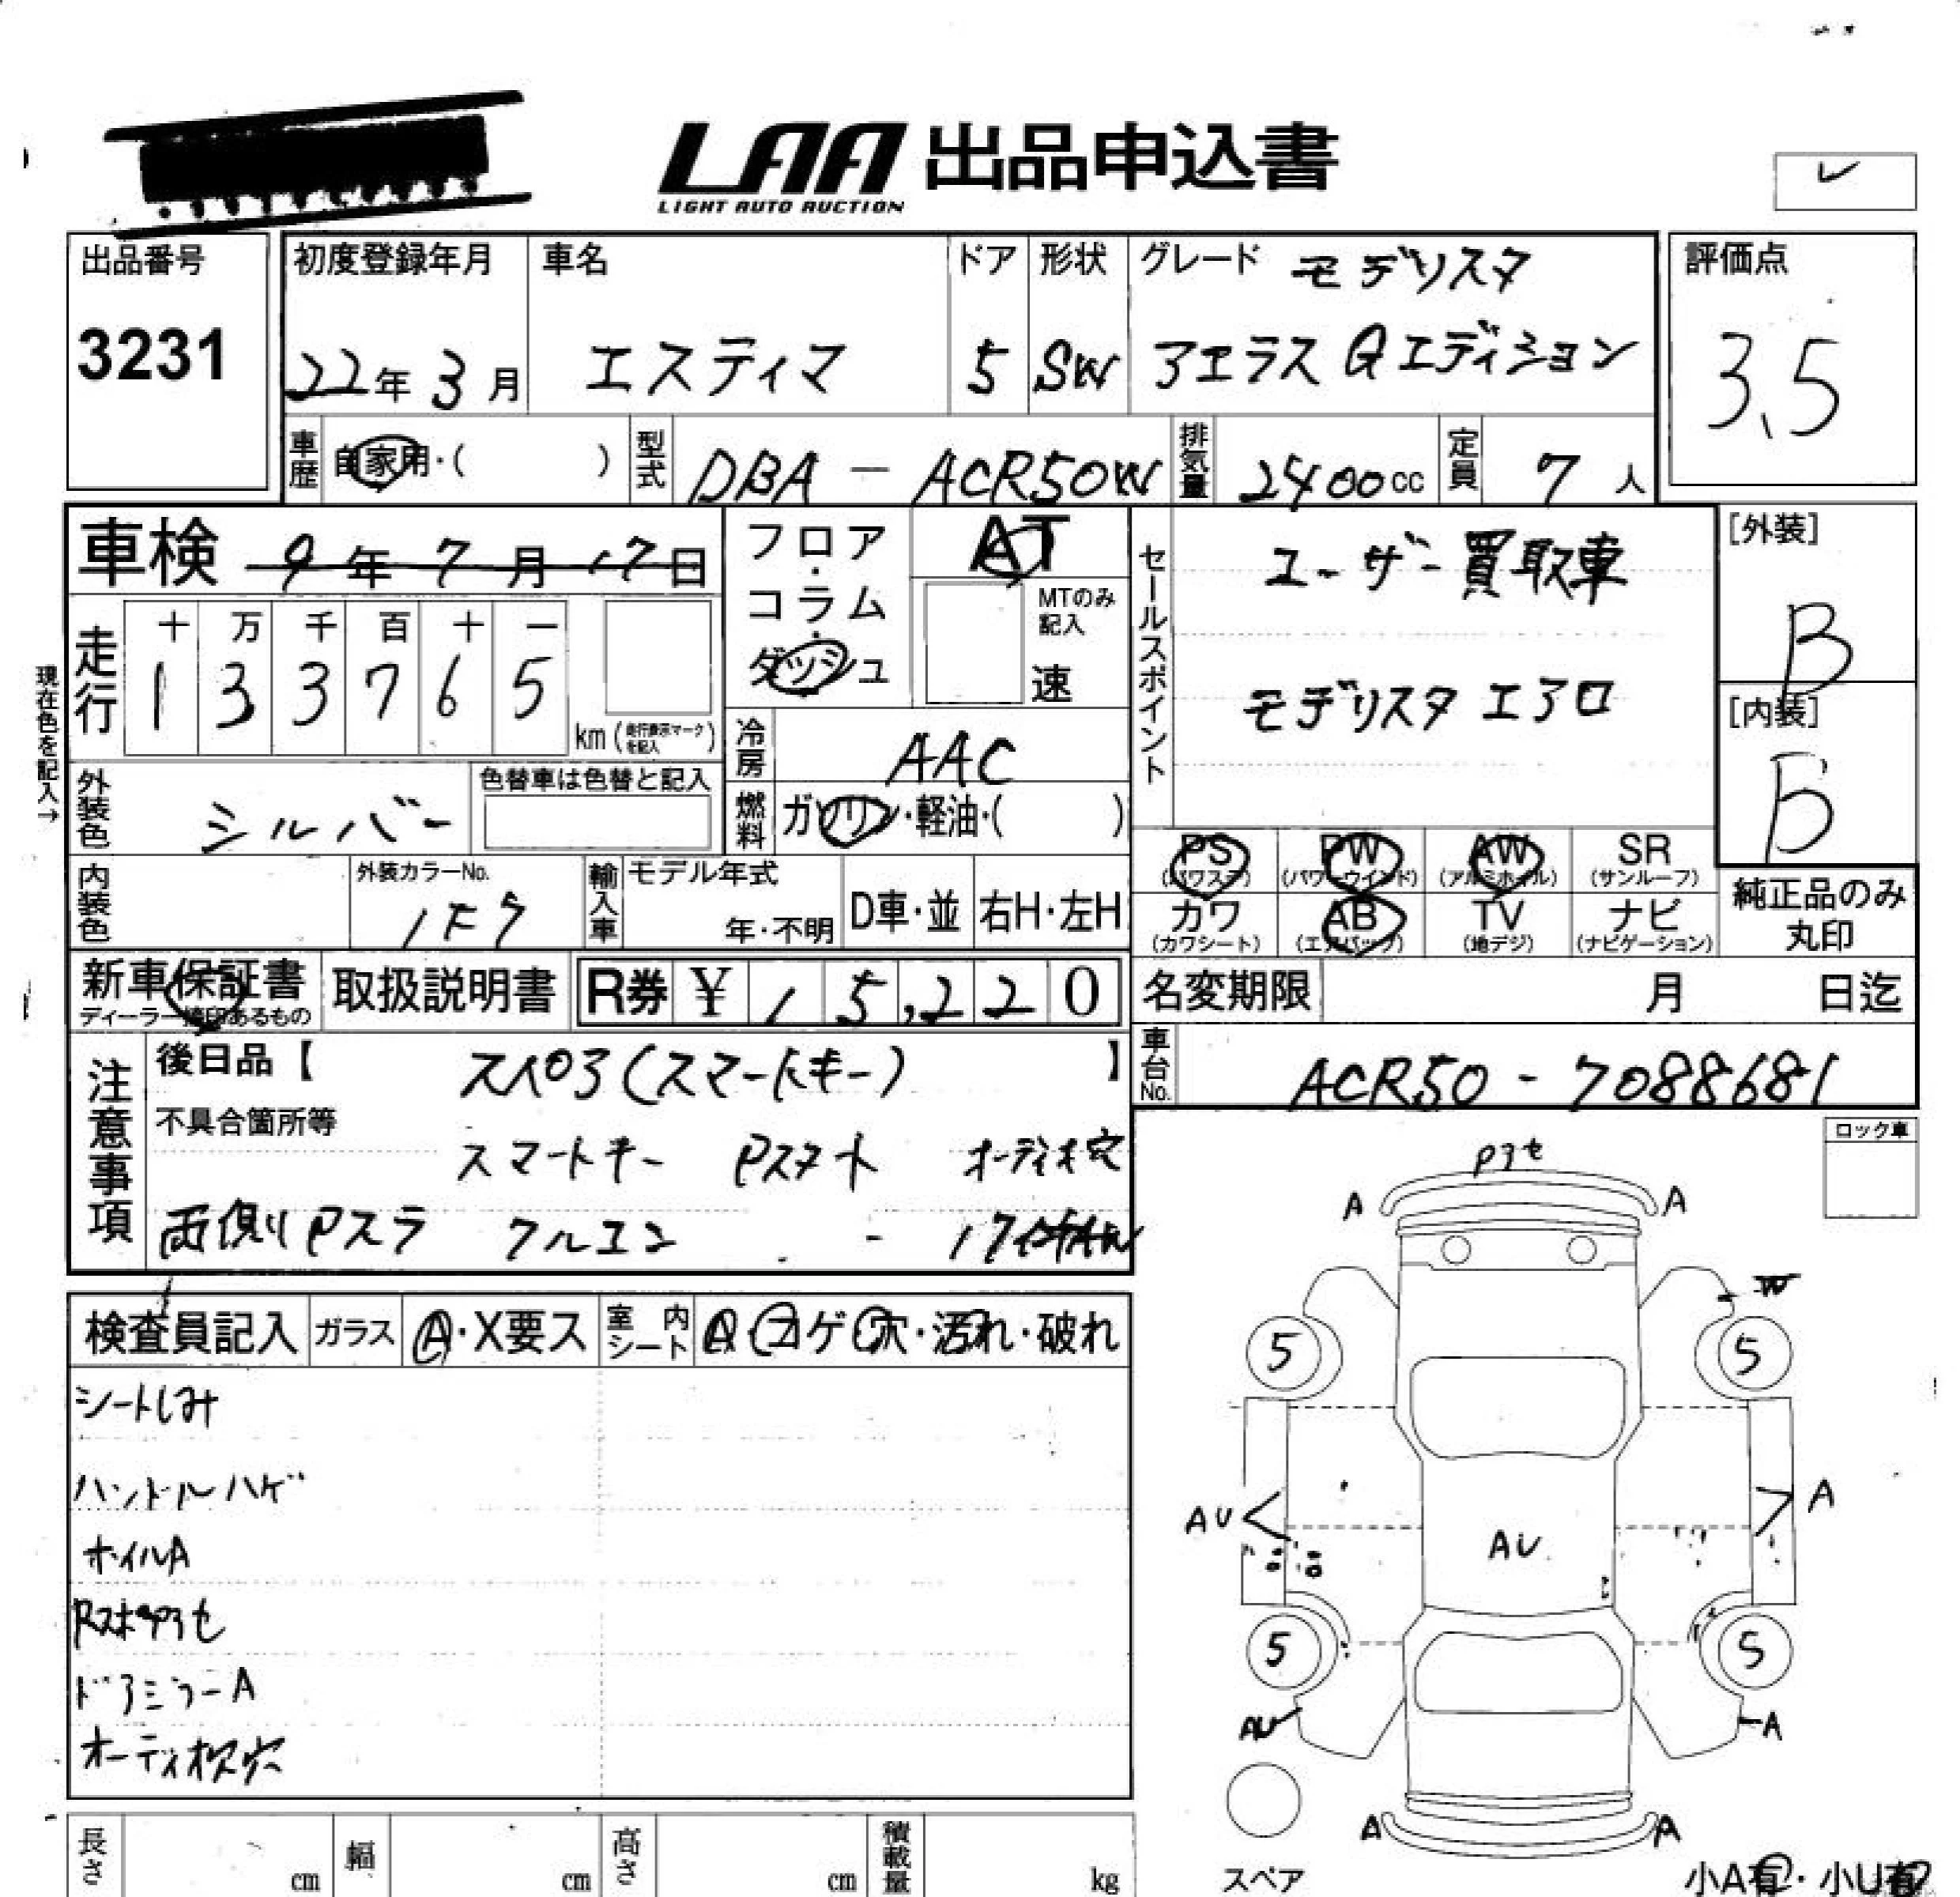 LAA 出品申込書
LIGHT AUTO AUCTION
出品番号
3231
初度登録年月
22年 3月
車名
エスティマ
ドア
5
形状
SW
グレード モデリスタ
アエラス Gエディション
評価点
3.5
車歴 自家用・( )
型式 DBA - ACR50W
排気量 2400cc
定員 7人
車検 9年7月17日
フロア・コラム・ダッシュ
AT
MTのみ記入
速
セールスポイント
ユーザー買取車
モデリスタエアロ
[外装]
B
[内装]
B
現在色を記入→
走行
十 万 千 百 十 一
1 3 3 7 6 5
km(走行表示マークを記入)
冷房 AAC
燃料 ガソリン・軽油・( )
外装色 シルバー
色替車は色替と記入
内装色
外装カラーNo.
1F7
輸入車
モデル年式
年・不明
D車・並
右H・左H
PS (パワステ)
PW (パワーウインド)
AW (アルミホイル)
SR (サンルーフ)
カワ (カワシート)
AB (エアバック)
TV (地デジ)
ナビ (ナビゲーション)
純正品のみ丸印
新車保証書
ディーラー捺印あるもの
取扱説明書
R券 ¥ 15,220
名変期限 月 日迄
車台No. ACR50 - 7088681
注意事項
後日品【 スペア(スマートキー) 】
不具合箇所等
スマートキー Pスタート オーディオ穴
両側Pスラ クルコン - 17インチAW
ロック車
検査員記入
ガラス A・X要ス
室内シート A・コゲ穴・汚れ・破れ
シートしみ
ハンドルハゲ
ホイルA
Rスポアセ
ドアミラーA
オーディオ枠穴
アセ
A A
W
5 5
AU A
AU
5 5
AU A
A A
スペア
小A有・小U有
長さ cm
幅 cm
高さ cm
積載量 kg